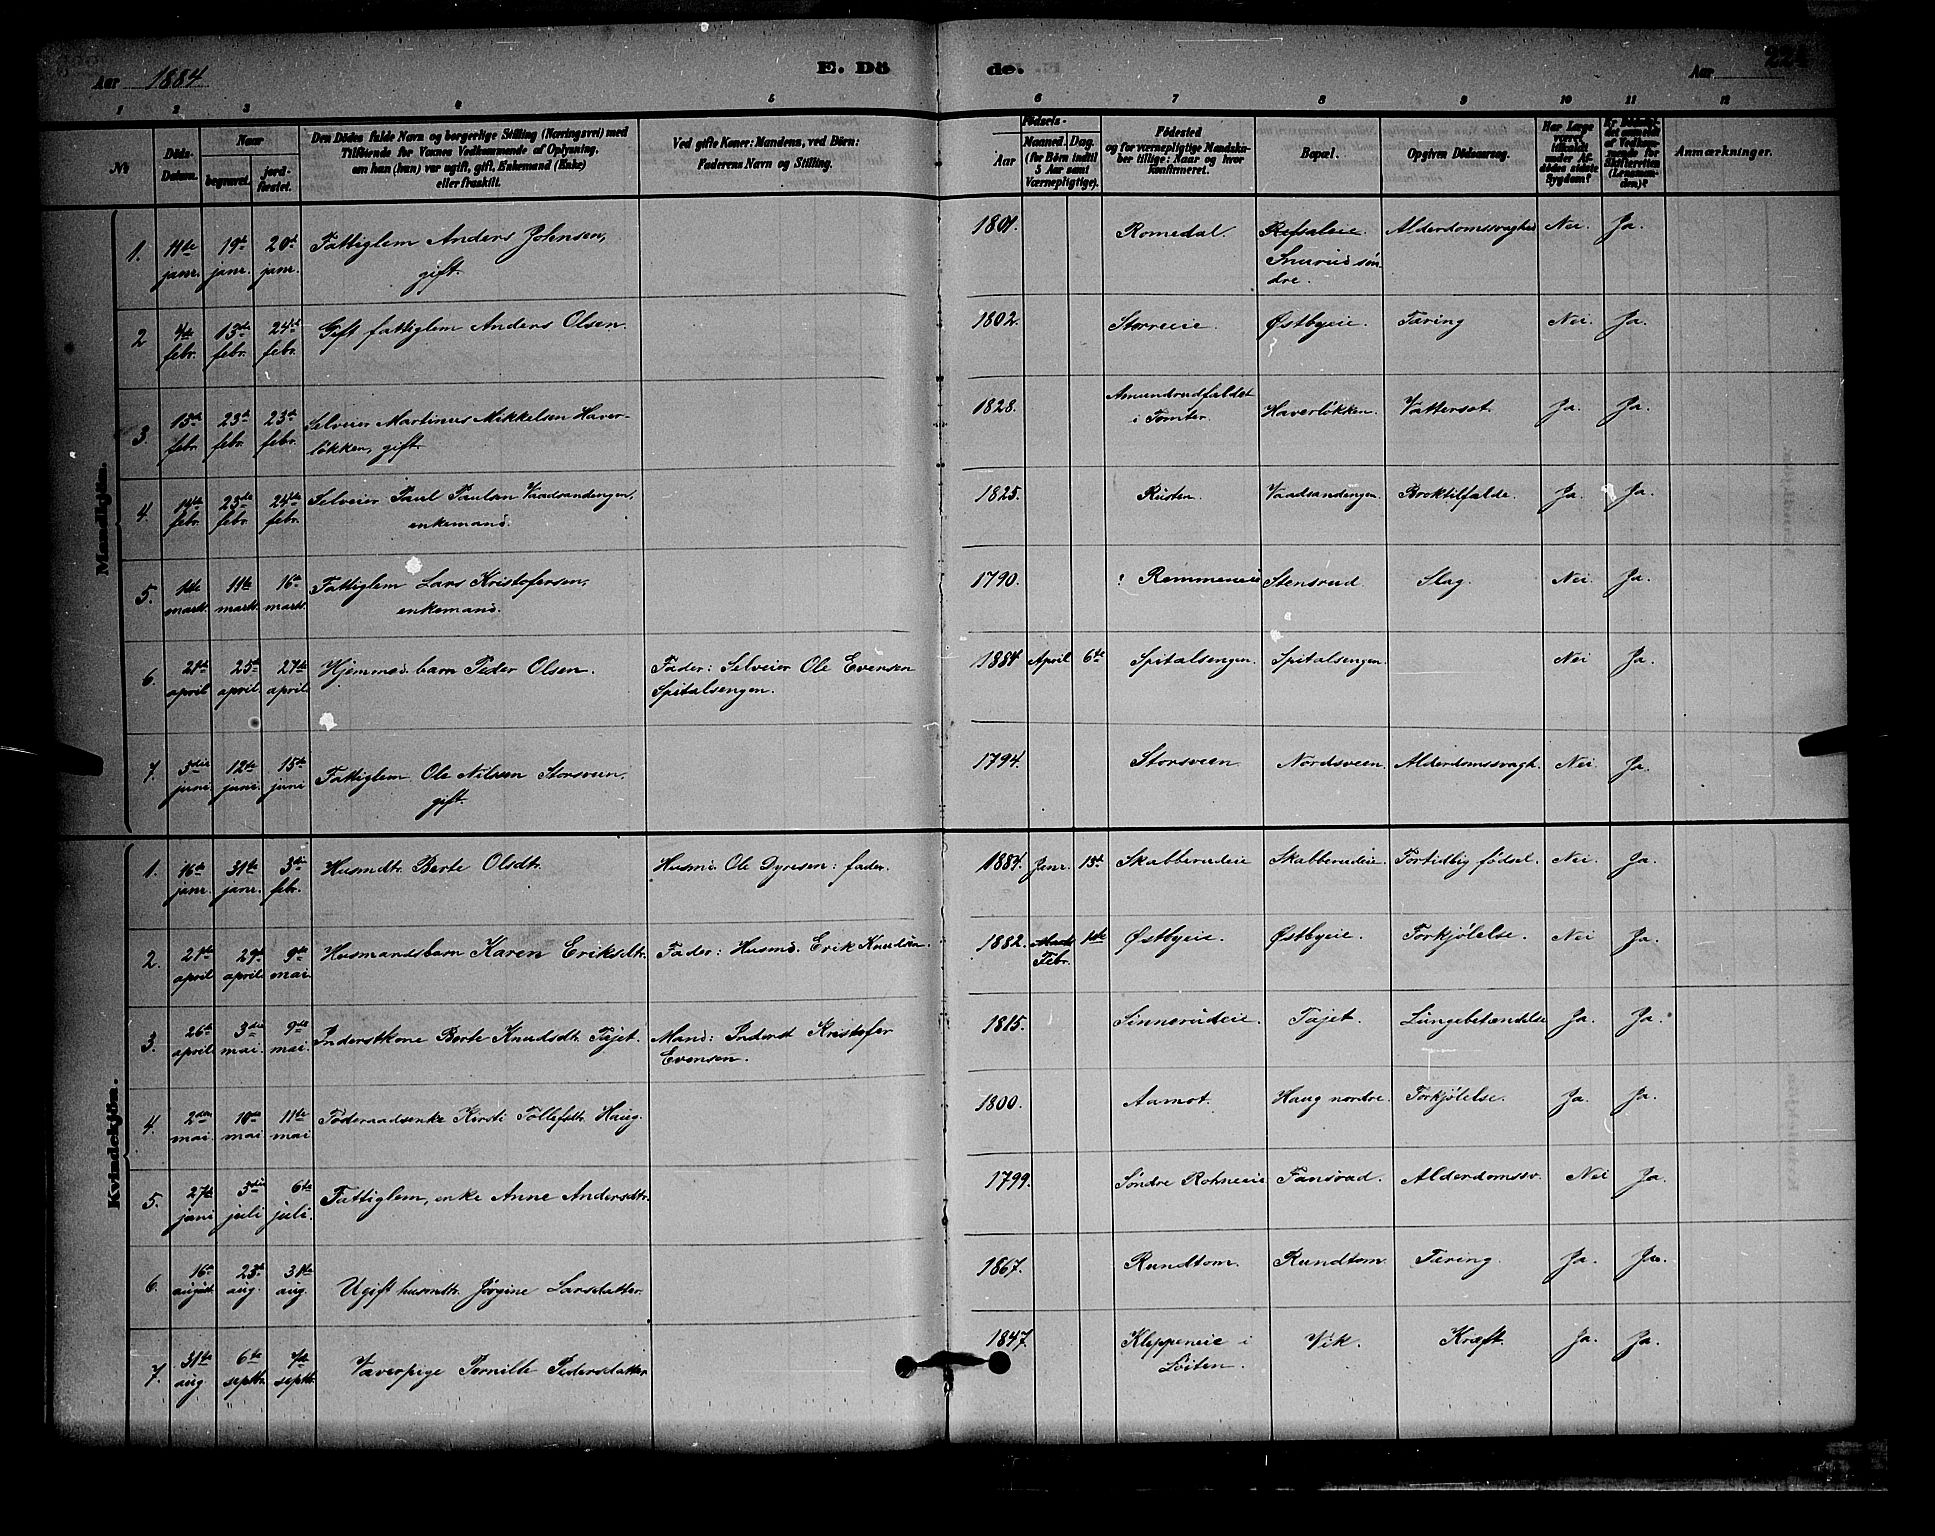 Aar 1884
E. Dö de.
Aar
1 2 3 4 5 6 7 8 9 10 11 12
№
Döds-Datum.
Naar
begravet. jord-fæstet.
Den Dödes fulde Navn og borgerlige Stilling (Næringsvei) med
Tilföiende for Voxnes Vedkommende af Oplysning,
om han (hun) var ugift, gift, Enkemand (Enke)
eller fraskilt.
Ved gifte Koner: Mandens, ved Börn:
Faderens Navn og Stilling.
Födsels-
Aar Maaned. Dag.
(for Börn indtil
5 Aar samt
Værnepligtige).
Födested
og for værnepligtige Mandskaber tillige: Naar og hvor
konfirmeret.
Bopæl.
Opgiven Dödsaarsag.
Har Læge
været
tilkaldt
under Afdödes sidste
Sygdom?
Er Dödsfaldet anmeldt
af Vedkommende for
Skifteretten
(Lensmanden)?
Anmærkninger.
Mandkjön.
1. 11te janr. 19de janr. 20de janr. Fattiglem Anders Johnsen, gift. 1801. Romedal. Refsaleie. Snurud søndre. Alderdomssvaghed Nei. Ja.
2 4de febr. 13de febr. 24de febr. Gift fattiglem Anders Olsen. 1802. Storreie. Østbyeie. Tæring Nei. Ja.
3. 15de febr. 23de febr. 23de febr. Selveier Martinus Mikkelsen Haverløkken, gift. 1828. Amundrudfaldet i Tomter. Haverløkken. Vattersot. Ja. Ja.
4. 14de febr. 23de febr. 24de febr. Selveier Paul Paulsen Vaadsandengen, enkemand. 1825. Rusten. Vaadsandengen. Broktilfælde. Ja. Ja.
5. 1ste marts. 11te marts. 16de marts. Fattiglem Lars Kristofersen, enkemand. 1790. ? Remmeneie Stensrud Slag. Nei Ja.
6 21de april 25de april 27de april Hjemmed. barn Peder Olsen. Fader: Selveier Ole Evensen Spitalsengen. 1884 April 6te Spitalsengen. Spitalsengen. Nei Ja.
7. 3die juni 12te juni 15de juni Fattiglem Ole Nilsen Storsveen, gift. 1794. Storsveen Nordsveen. Alderdomssvagh. Nei Ja.
Kvindekjön.
1. 16de janr. 31te janr. 3die febr. Husmdtr. Berte Olsdtr. Husmd. Ole Dyresen: fader. 1884. Janr. 15de Skabberudeie Skabberudeie. Fortidlig fødsel. Nei. Ja.
2. 21de april 29de april 9de mai. Husmandsbarn Karen Eriksdtr. Fader: Husmd. Erik Knudsen. 1882. Febr. 1ste Østbyeie. Østbyeie. Forkjølelse. Nei Ja.
3. 26de april 3die mai. 9de mai. Inderstkone Berte Knudsdtr. Tajet. Mand: Inderst Kristofer Evensen. 1815. Sinnerudeie. Tajet. Lungebetændelse Ja. Ja.
4. 2den mai. 10de mai 11te mai Føderaadsenke Kirsti Tollefsdtr. Haug. 1800. Aamot. Haug nordre. Forkjølelse. Ja. Ja.
5. 27de juni 5die juli 6te juli. Fattiglem, enke Anne Andersdtr. 1799. Søndre Rohneeie Fansrud. Alderdomssv. Nei Ja.
6. 16de august. 23de aug. 31te aug. Ugift husmdtr. Jørgine Larsdatter. 1867. Rundtom. Rundtom. Tæring. Ja. Ja.
7. 31te aug 6te septbr. 7de septbr. Væverpige Pernille Pedersdatter 1847. Kleppeneie i Løiten. Vik. Kræft. Ja. Ja.